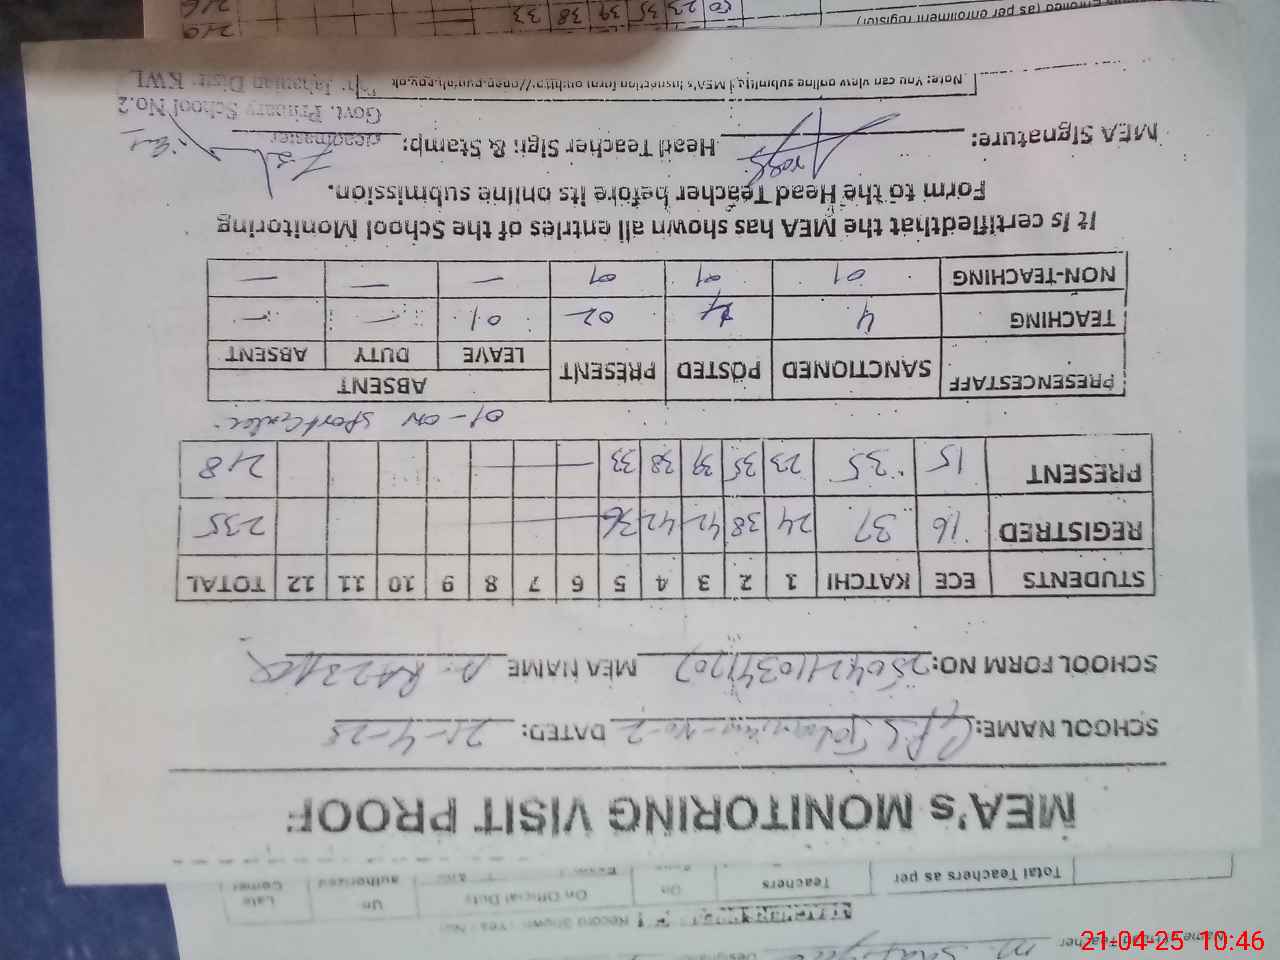 MEA's MONITORING VISIT PROOF
SCHOOL NAME: G.P.S No-2 DATED: 21-4-25
SCHOOL FORM NO: MEA NAME
STUDENTS ECE KATCHI 1 2 3 4 5 6 7 8 9 10 11 12 TOTAL
REGISTRED 16 37 24 38 42 42 36 235
PRESENT 15 35 23 35 39 38 33 218
01-on sport
PRESENCESTAFF SANCTIONED POSTED PRESENT ABSENT
LEAVE DUTY ABSENT
TEACHING 4 4 02 01 — —
NON-TEACHING 01 01 01 — — —
It is certifiedthat the MEA has shown all entries of the School Monitoring
Form to the Head Teacher before its online submission.
MEA Signature: Head Teacher Sign & Stamp:
Headmaster
Govt. Primary School No.2
Jahanian Distt: KWL
Note: You can view online submitted MEA's inspection form on
(as per enrollment register)
33 38 39 35 23 50
216
Total Teachers as per Teachers On On Official Duty Un authorized Late Comer
Record Shown: Yes / No
21-04-25 10:46